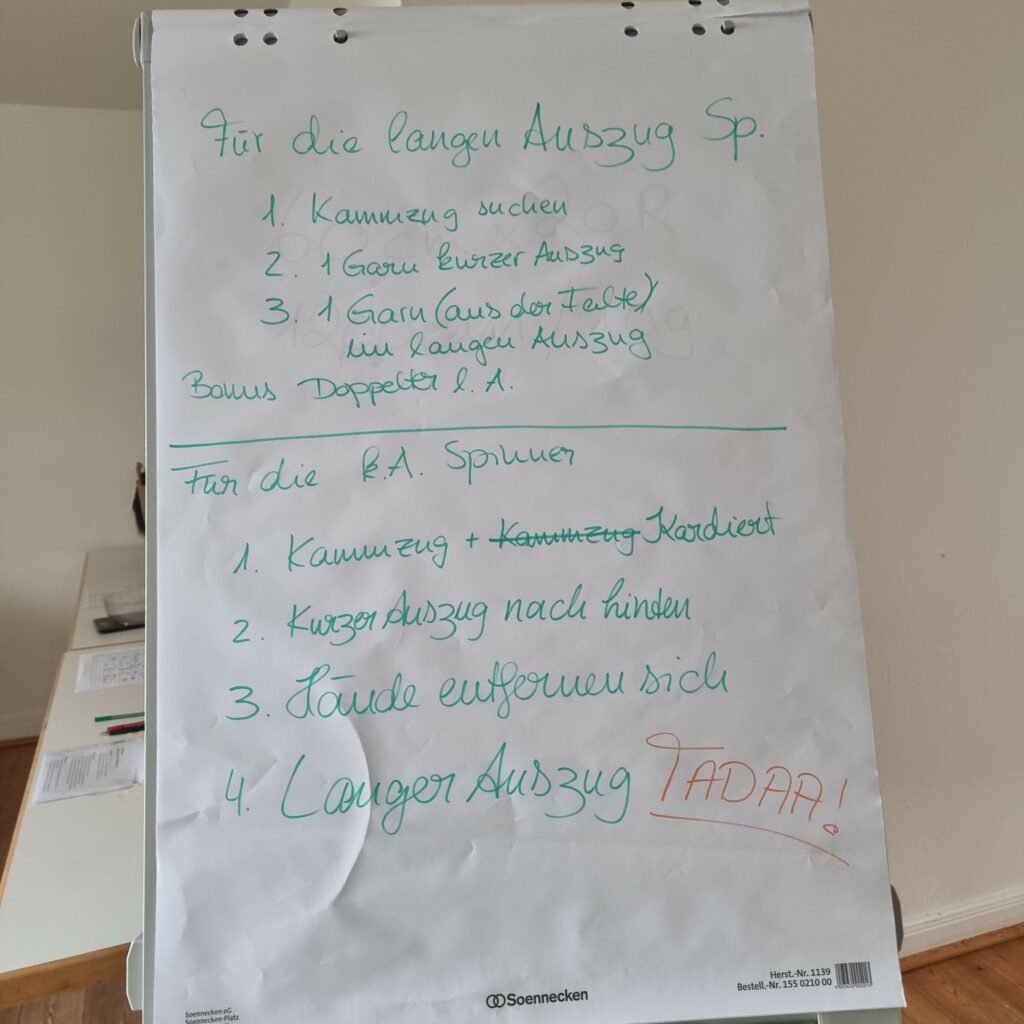 Für die langen Auszug Sp.
1. Kammzug suchen
2. 1 Garn kurzer Auszug
3. 1 Garn (aus der Falte)
im langen Auszug
Bonus Doppelter l. A.
Für die k.A. Spinner
1. Kammzug + Kammzug Kardiert
2. Kurzer Auszug nach hinten
3. Hände entfernen sich
4. Langer Auszug TADAA!
Herst.-Nr. 1139
Bestell.-Nr. 155 0210 00
Soennecken
Soennecken eG
Soennecken-Platz